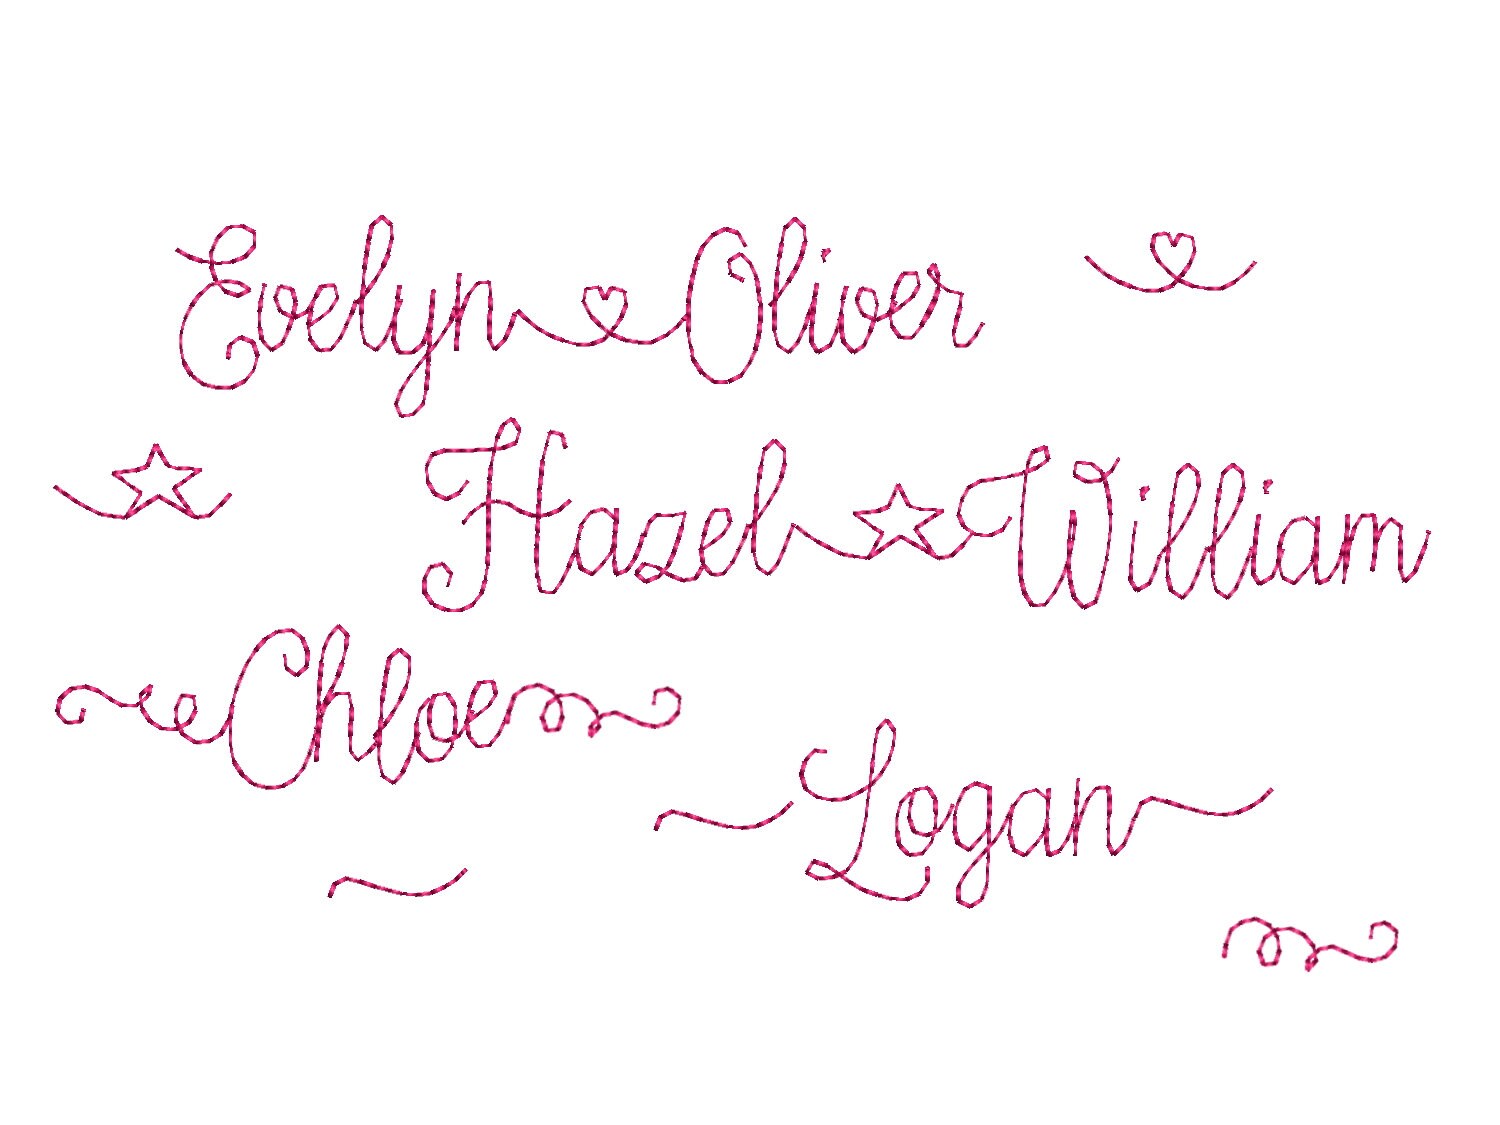 Evelyn Oliver
Hazel William
Chloe
Logan